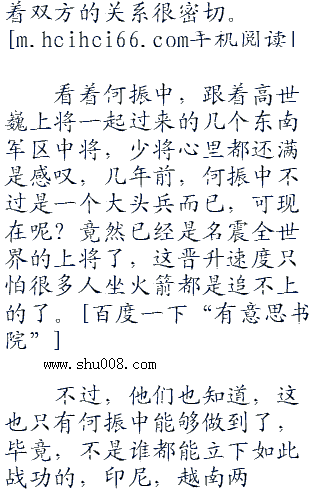 着双方的关系很密切。
[m.hcihci66.com手机阅读|
看着何振中，跟着高世
巍上将一起过来的几个东南
军区中将，少将心里都还满
是感叹，几年前，何振中不
过是一个大头兵而已，可现
在呢？竟然已经是名震全世
界的上将了，这晋升速度只
怕很多人坐火箭都是追不上
的了。[百度一下“有意思书
院”]
www.shu008.com
不过，他们也知道，这
也只有何振中能够做到了，
毕竟，不是谁都能立下如此
战功的，印尼，越南两